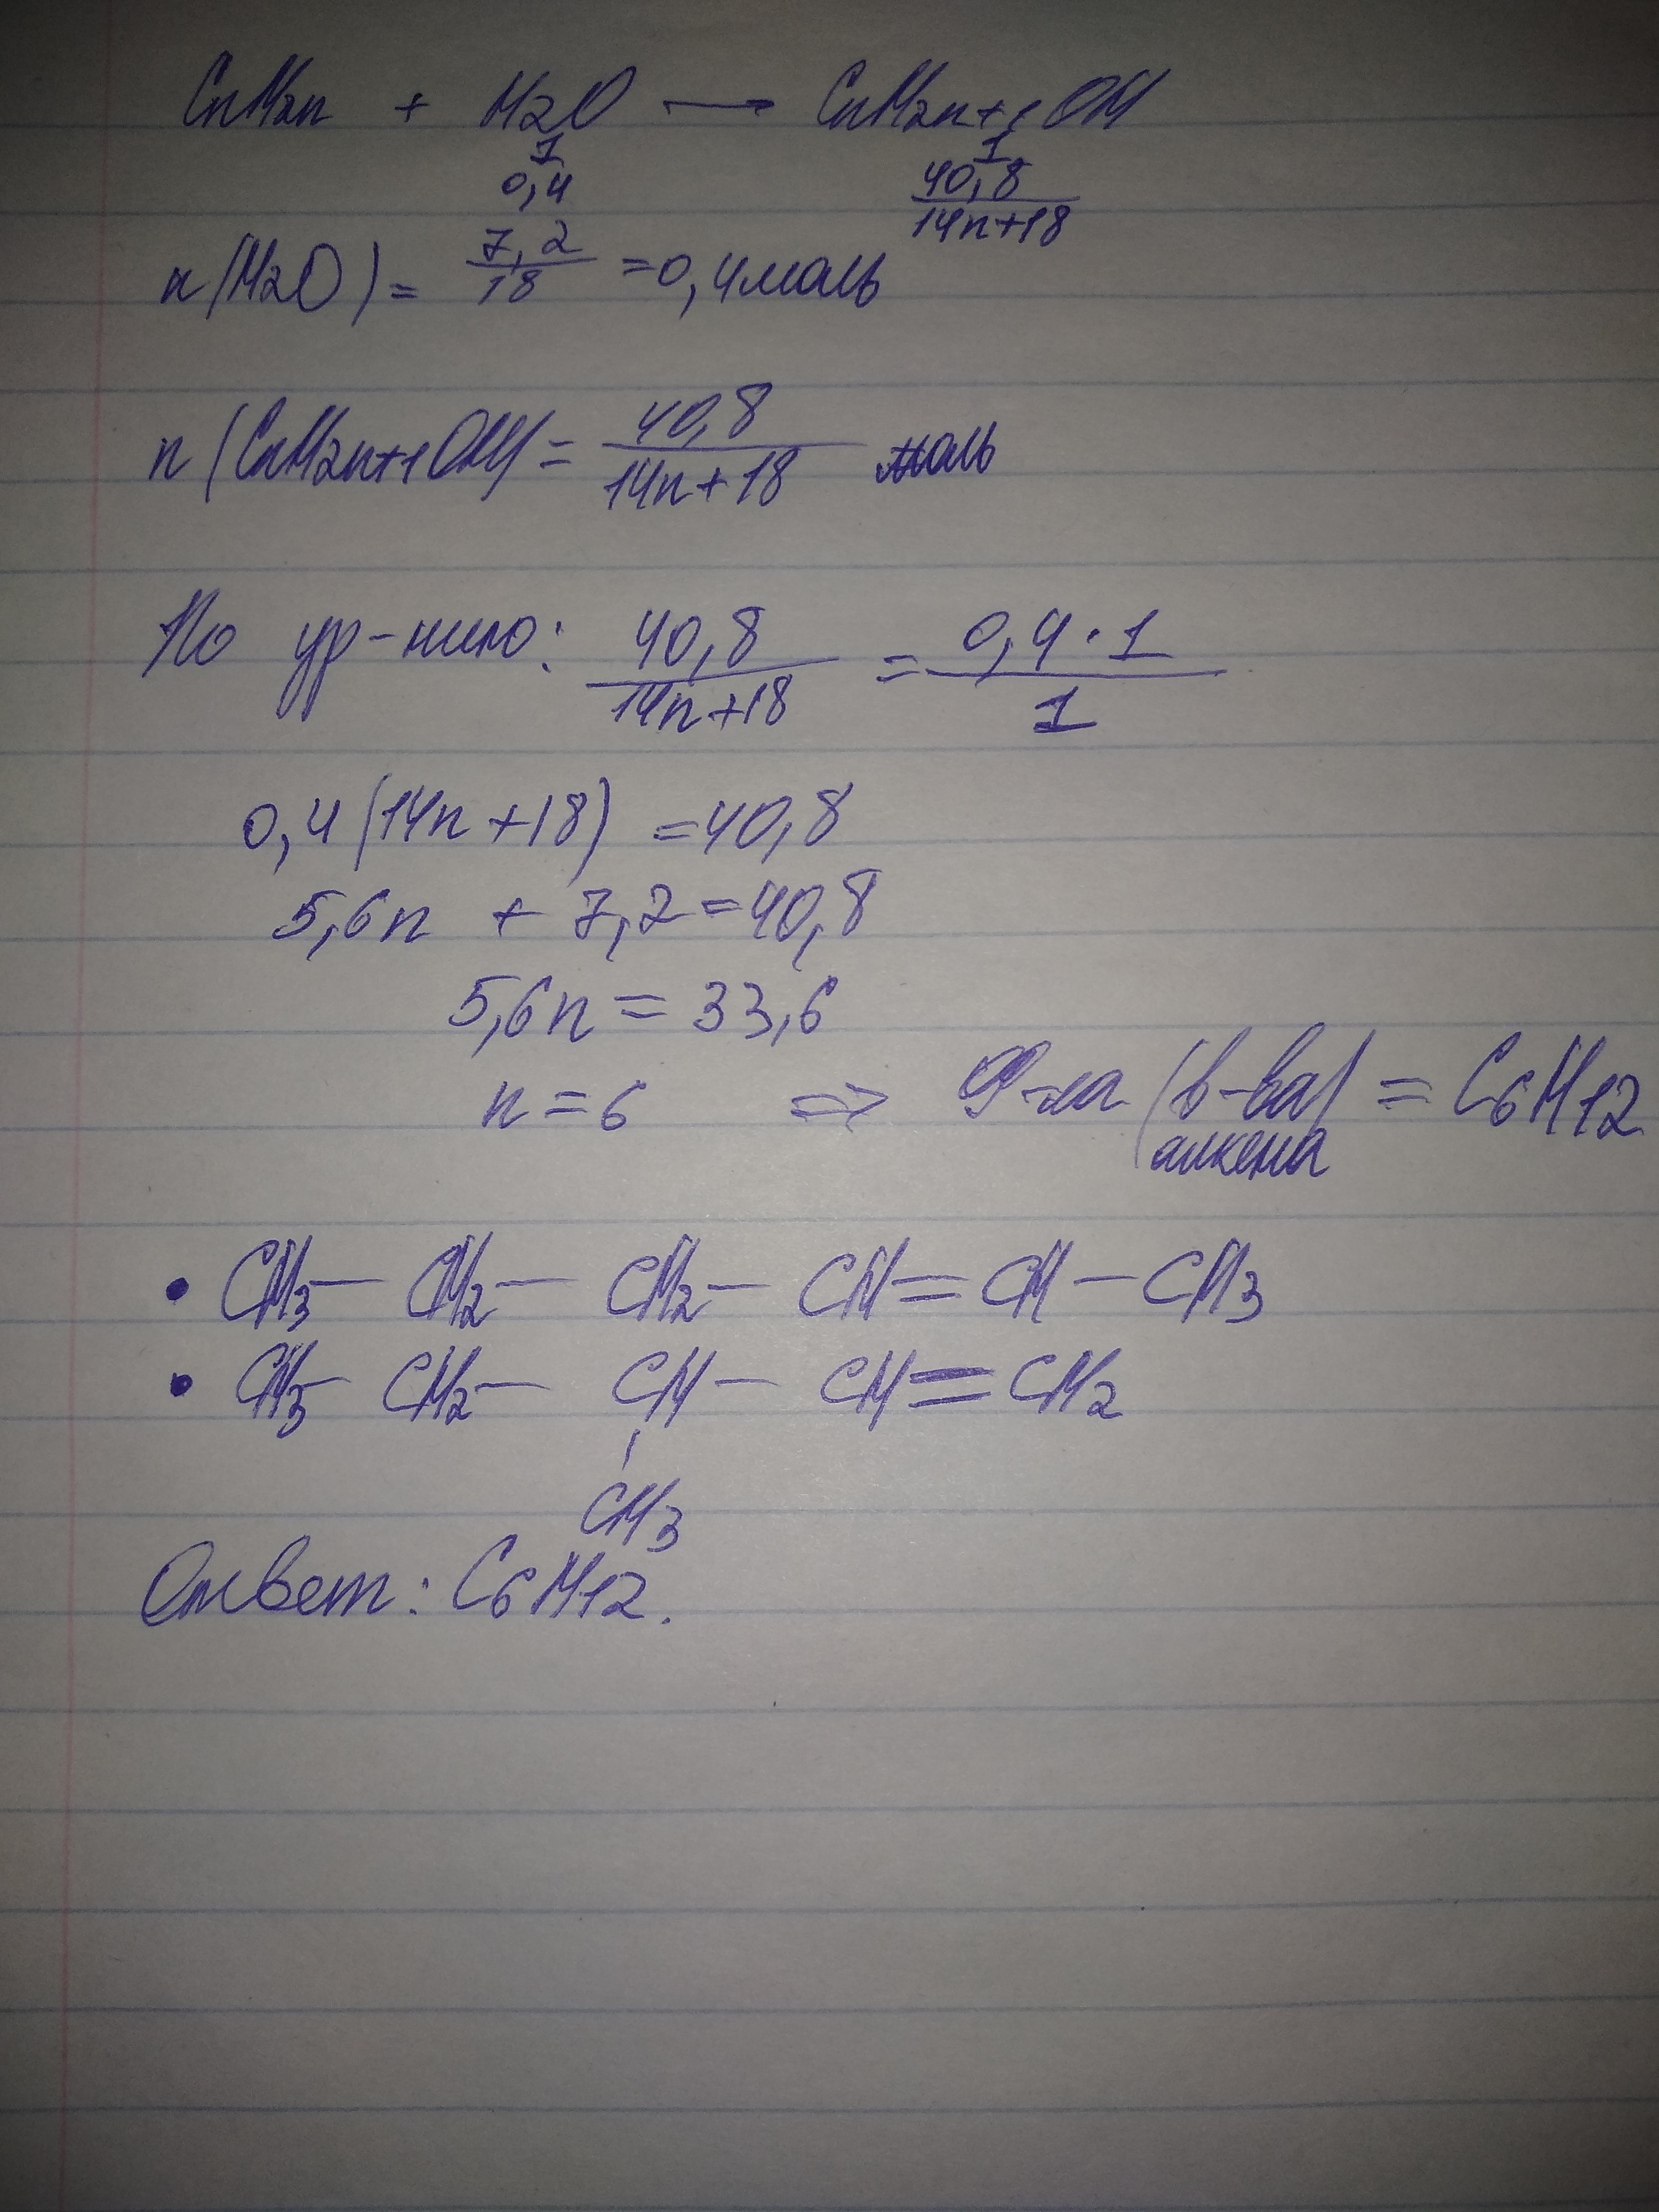 CnH2n + H2O → CnH2n+1OH
1 1
0,4 40,8/14n+18
n(H2O) = 7,2/18 = 0,4моль
n(CnH2n+1OH) = 40,8/14n+18 моль
По ур-нию: 40,8/14n+18 = 0,4·1/1
0,4(14n+18) =40,8
5,6n + 7,2=40,8
5,6n = 33,6
n=6 => Ф-ла (в-ва) = C6H12
алкена
• CH3— CH2— CH2— CH=CH—CH3
• CH3— CH2— CH— CH=CH2
CH3
Ответ: C6H12.